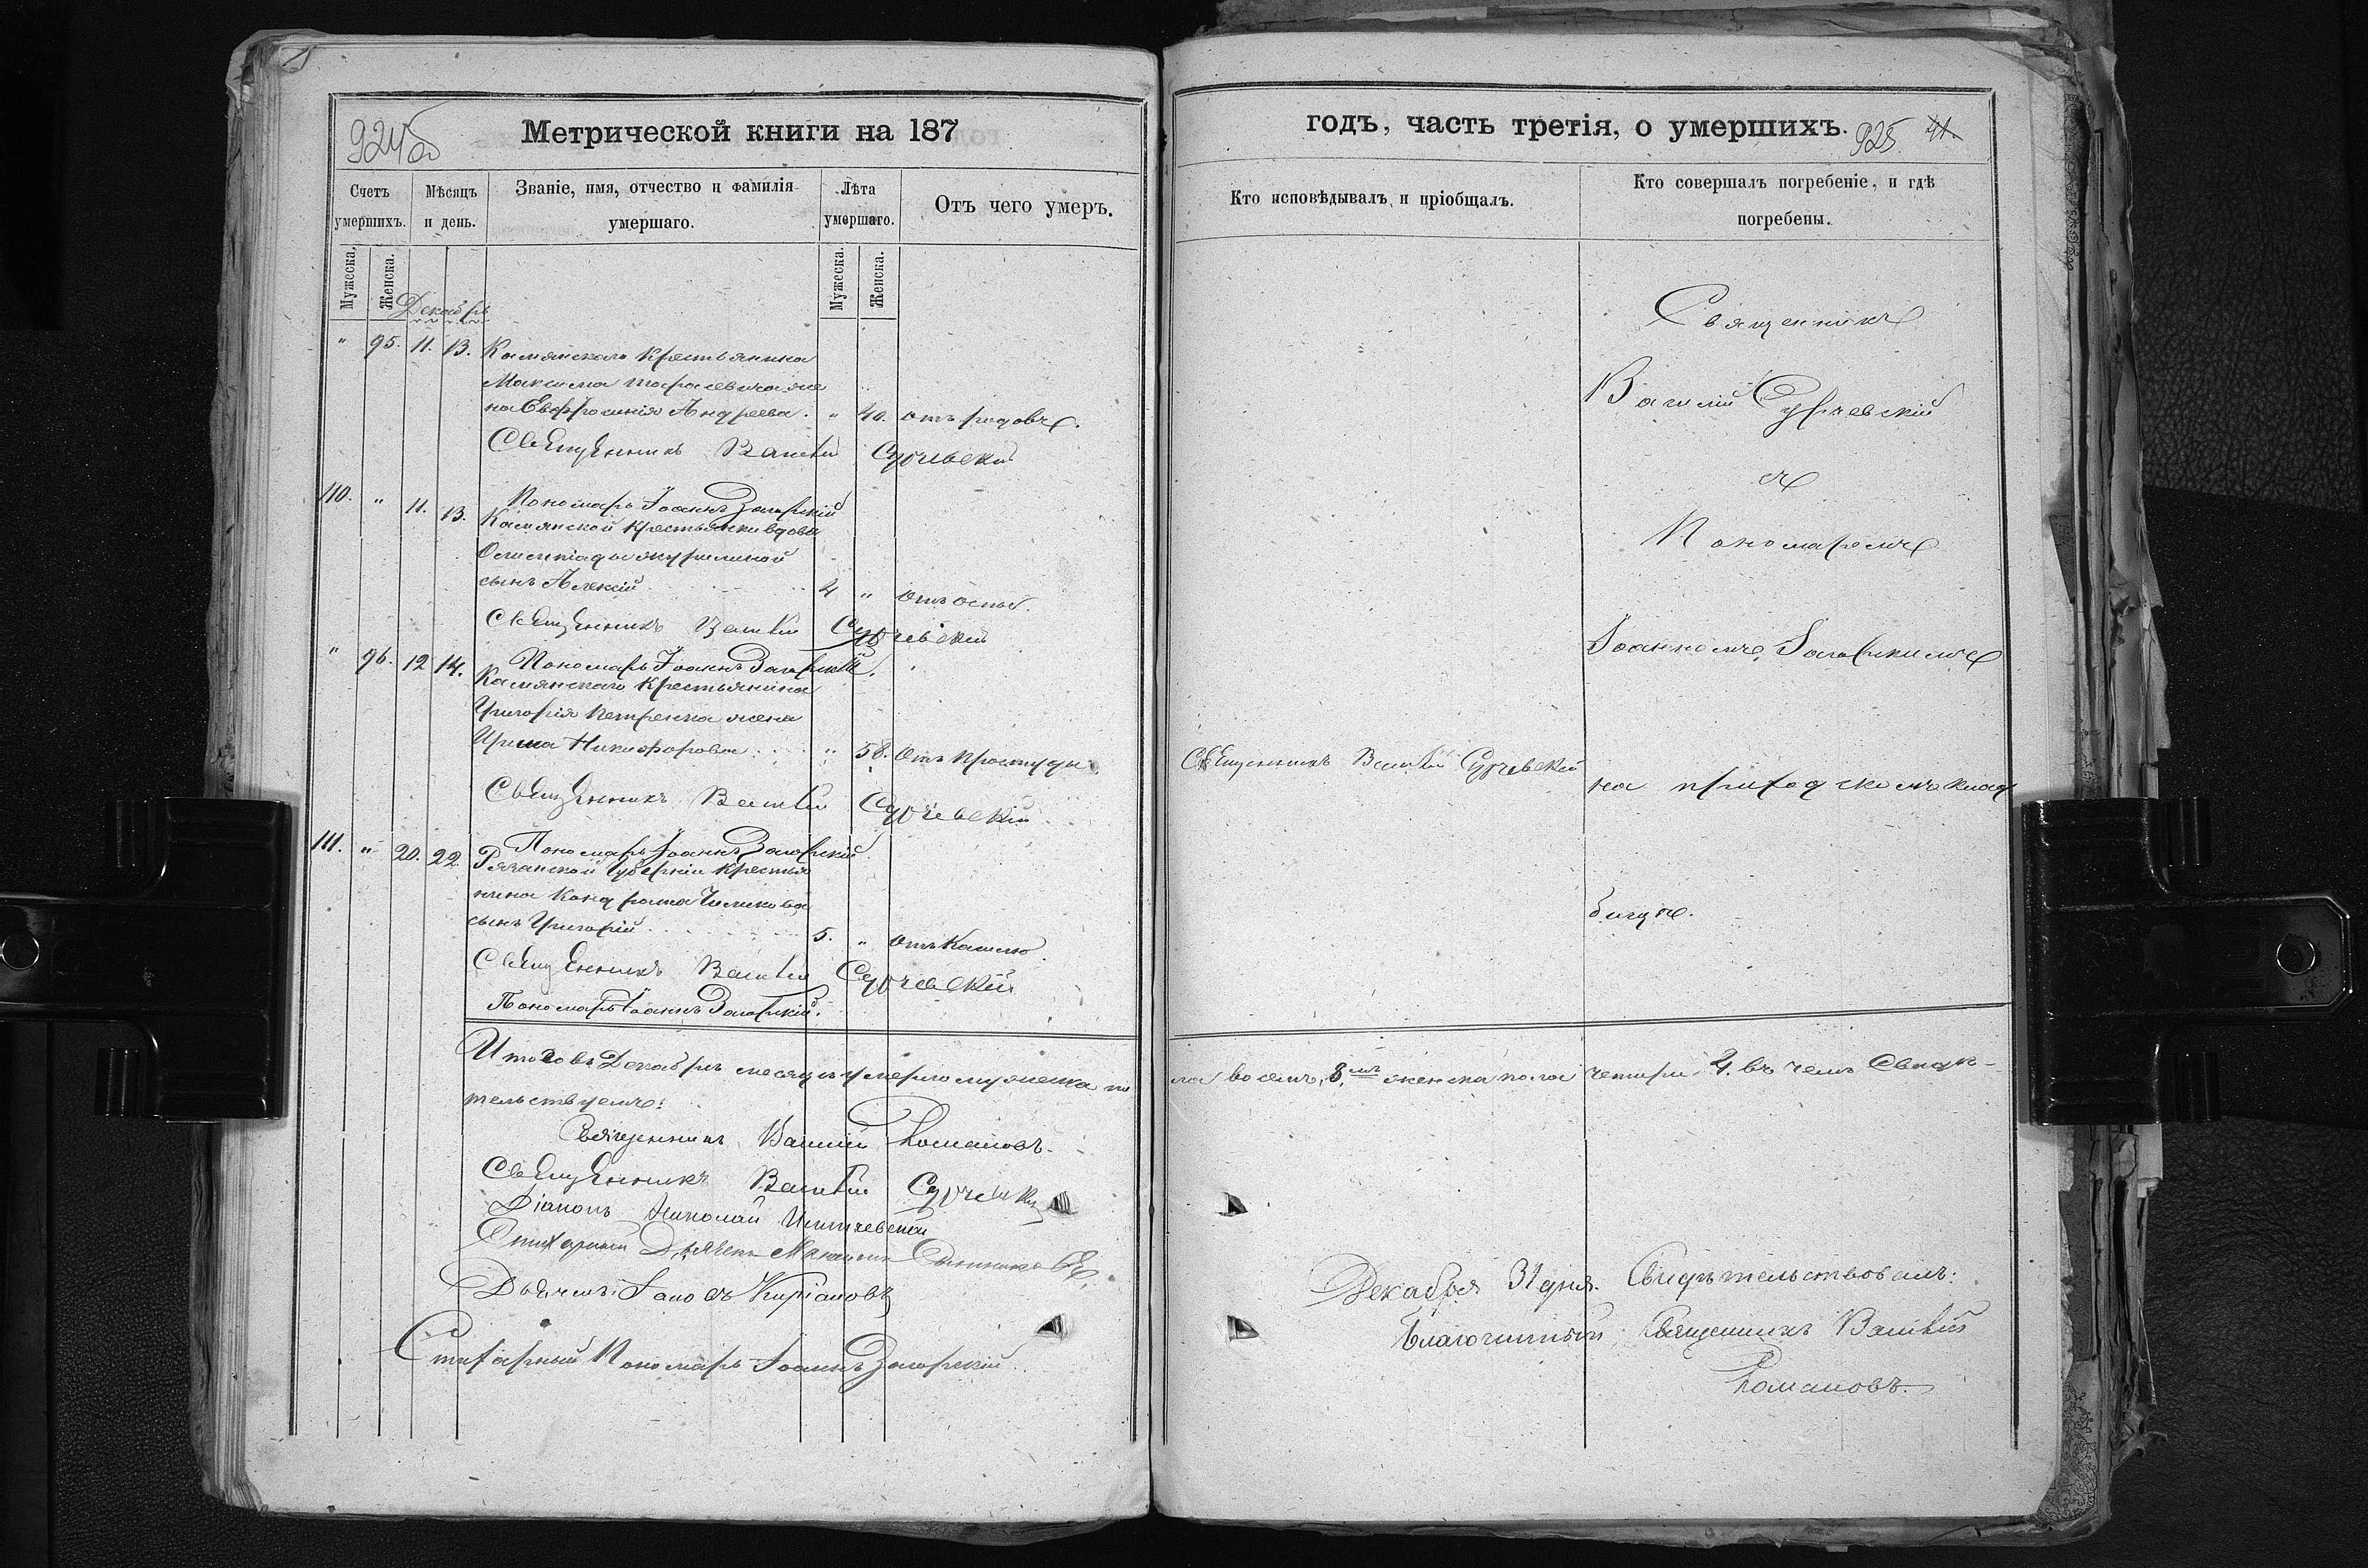 924об
Метрической книги на 187
Счетъ умершихъ.
Мѣсяцъ и день.
Званіе, имя, отчество и фамилія умершаго.
Лѣта умершаго.
Отъ чего умеръ.
Мужеска.
Женска.
Мужеска.
Женска.
Декабрь
" 95. 11. 13. Камянскаго крестьянина
Максима Тарасевича же
на Евфросинія Андреева. " 40. отъ родовъ.
Священникъ Василій Сурчевскій
Пономарь Іоаннъ Загорскій
110. " 11. 13. Камянской крестьянки вдовы
сынъ Алексій 4 " Отъ оспы.
Священникъ Василій Сурчевскій
Пономарь Іоаннъ Загорскій.
" 96. 12 14. Камянскаго крестьянина
Григорія Петренка жена
Ирина Никифорова " 58. Отъ простуды
Священникъ Василій Сурчевскій
Пономарь Іоаннъ Загорскій.
111. " 20. 22. Рязанской Губерніи крестья
нина Кондрата Чиликова
сынъ Григорій 5. " Отъ кашлю.
Священникъ Василій Сурчевскій
Пономарь Іоаннъ Загорскій.
Итого въ Декабрѣ месяцѣ умерло мужеска по
тельствуемъ:
Священникъ Василій Романовъ.
Священникъ Василій Сурчевскій
Діаконъ Николай
Стихарный Дьячекъ Максимъ
Дьячекъ Кипріановъ
Стихарный Пономарь Іоаннъ Загорскій.
годъ, часть третія, о умершихъ.
925
41.
Кто исповѣдывалъ и пріобщалъ.
Кто совершалъ погребеніе, и гдѣ погребены.
Священникъ
Василій Сурчевскій
съ
Пономаремъ
Іоанномъ Загорскимъ
Священникъ Василій Сурчевскій
на приходскомъ клад
бищѣ.
ла восемь, 8.мь женска пола четыри 4. въ чемъ свидѣ-
Декабря 31 дня. Свидѣтельствовалъ:
Благочинный Священникъ Василій
Романовъ.